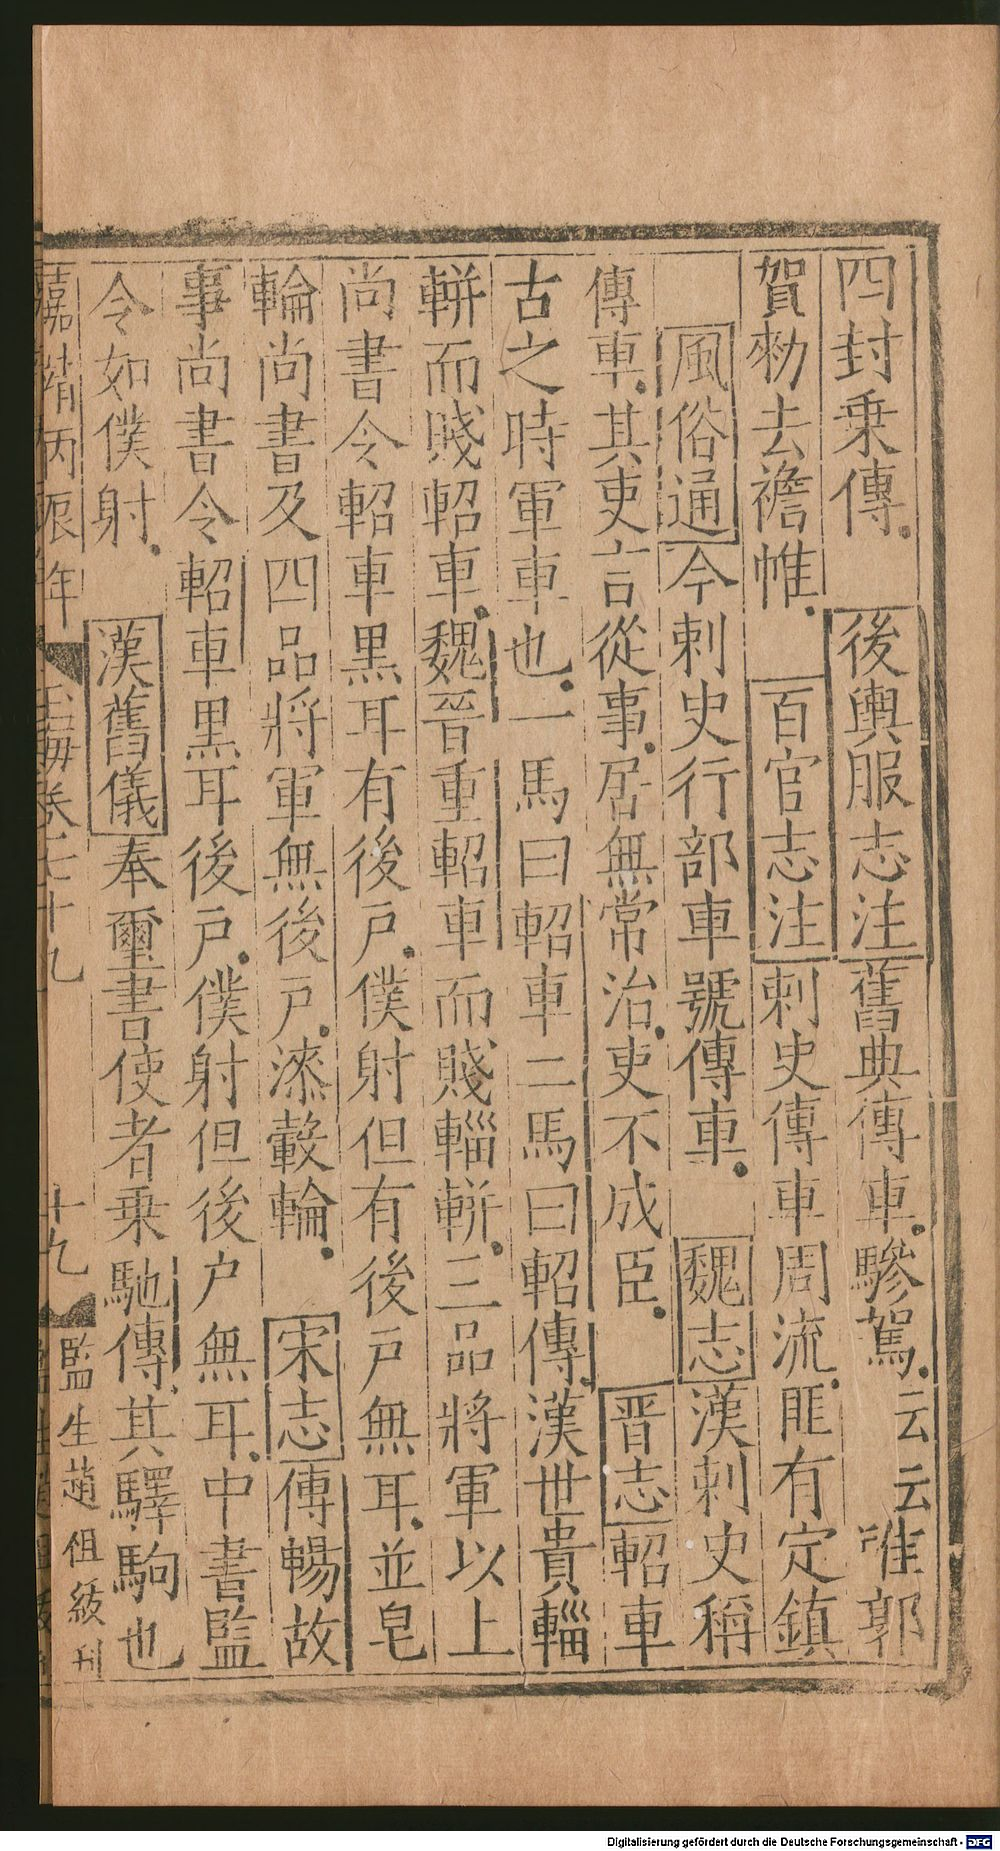 四封乗傳　後輿服志注舊典傳車驂駕云云唯郭
賀勑去襜帷　百官志注刺史傳車周流匪有定鎮
風俗通今刺史行部車號傳車　魏志漢刺史稱
傳車其吏言從事居無常治吏不成臣　晋志軺車
古之時軍車也一馬曰軺車二馬曰軺傳漢世貴輜
軿而賤軺車魏晉重軺車而賤輜軿三品將軍以上
尚書令軺車黑耳有後戶僕射但有後戶無耳並皂
輪尚書及四品將軍無後戶漆轂輪　宋志傳暢故
事尚書令軺車黑耳後戶僕射但後户無耳中書監
令如僕射　漢舊儀奉璽書使者乗馳傳其驛駒也
嘉靖丙辰年　玉海卷七十九　十九　監生趙伹級刊
Digitalisierung gefördert durch die Deutsche Forschungsgemeinschaft - DFG